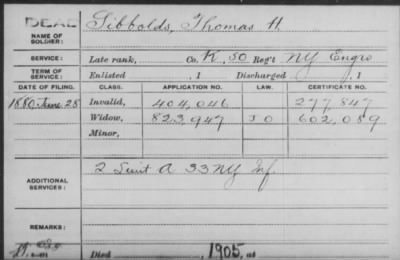 DEAD
Sibbolds, Thomas H.
NAME OF SOLDIER:
SERVICE: Late rank, Co. K, 50 Reg't NY Engrs
TERM OF SERVICE: Enlisted , 1 Discharged , 1
DATE OF FILING. CLASS. APPLICATION NO. LAW. CERTIFICATE NO.
1880 June 28 Invalid, 404,046 277,847
Widow, 823,947 602,089
Minor,
ADDITIONAL SERVICES: 2 A 33 NY Inf.
REMARKS:
Died , 1905, at